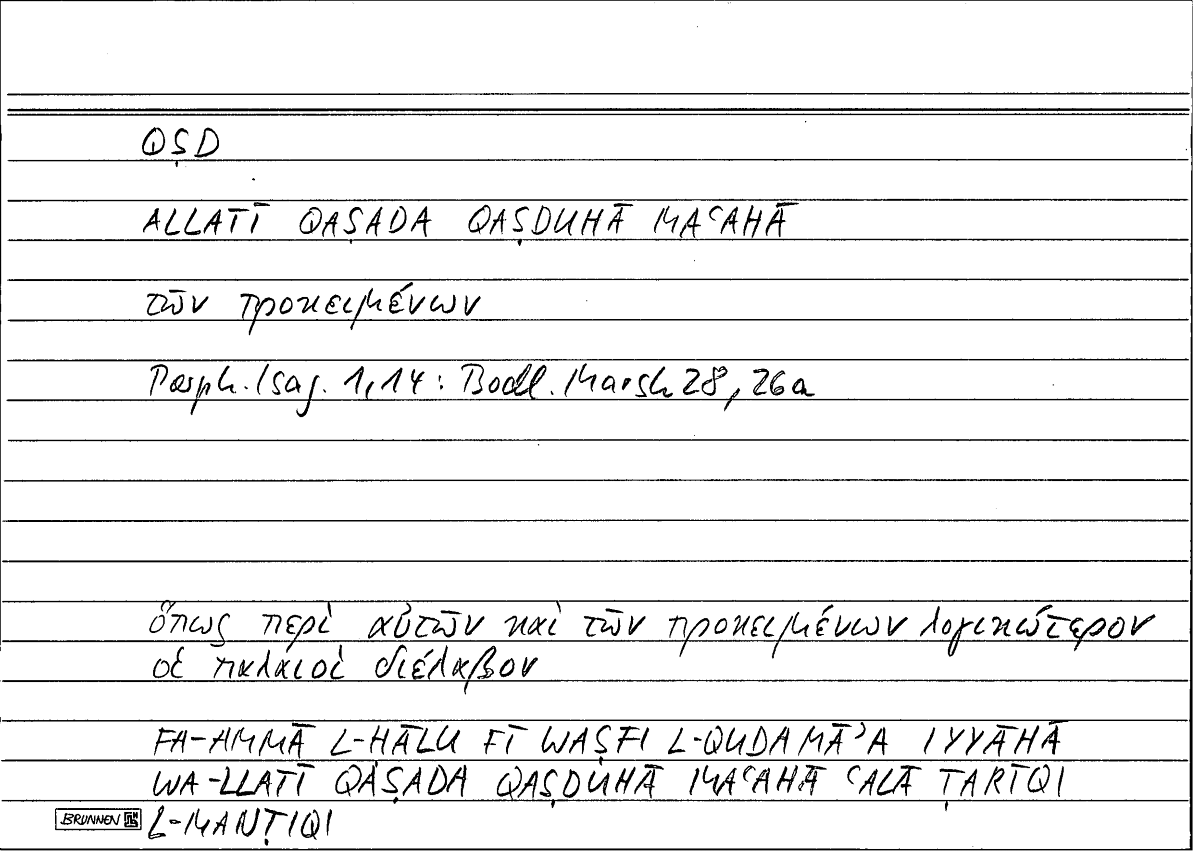 QṢD
ALLATĪ QAṢADA QAṢDUHĀ MAʿAHĀ
τῶν προκειμένων
Porph. Isag. 1,14: Bodl. Marsh 28, 26a
ὅπως περὶ αὐτῶν καὶ τῶν προκειμένων λογικώτερον
οἱ παλαιοὶ διέλαβον
FA-AMMĀ L-HĀLU FĪ WAṢFI L-QUDAMĀʾA IYYĀHĀ
WA-LLATĪ QAṢADA QAṢDUHĀ MAʿAHĀ ʿALĀ ṬARĪQI
L-MANṬIQI
BRUNNEN